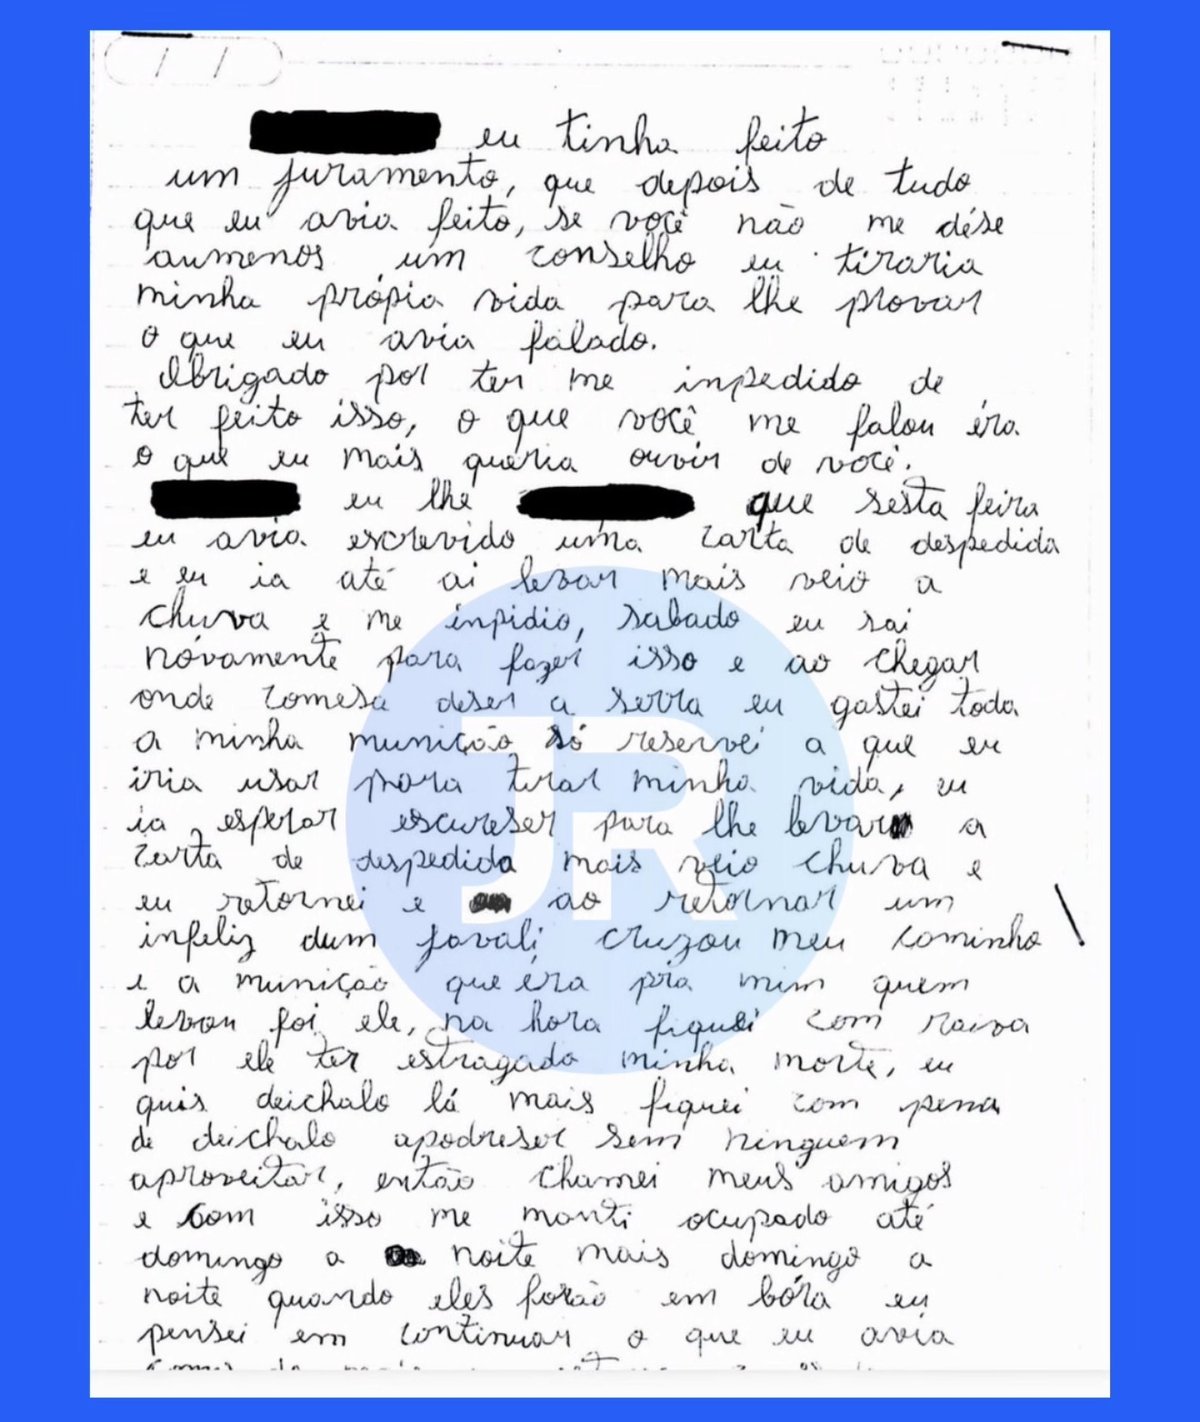 / /
eu tinha feito
um juramento, que depois de tudo
que eu avia feito, se você não me dése
aumenos um conselho eu tiraria
minha própia vida para lhe provar
o que eu avia falado.
Obrigado por ter me inpedido de
ter feito isso, o que você me falou éra
o que eu mais queria ouvir de você.
eu lhe que sesta feira
eu avia escrevido uma carta de despedida
e eu ia até ai levar mais veio a
chuva e me inpidio, sabado eu sai
nóvamente para fazer isso e ao chegar
onde comesa deser a serra eu gastei toda
a minha munição só reservei a que eu
iria usar para tirar minha vida, eu
ia esperar escureser para lhe levar a
carta de despedida mais veio chuva e
eu retornei e ao retornar um
infeliz dum javali cruzou meu caminho
e a munição que éra pra mim quem
levou foi ele, na hora fiquei com raiva
por ele ter estragado minha morte, eu
quis deichalo lá mais fiquei com pena
de deichalo apodreser sem ninguem
aproveitar, então chamei meus amigos
e com isso me manti ocupado até
domingo a noite mais domingo a
noite quando eles forão em bóra eu
pensei em continuar o que eu avia
JR